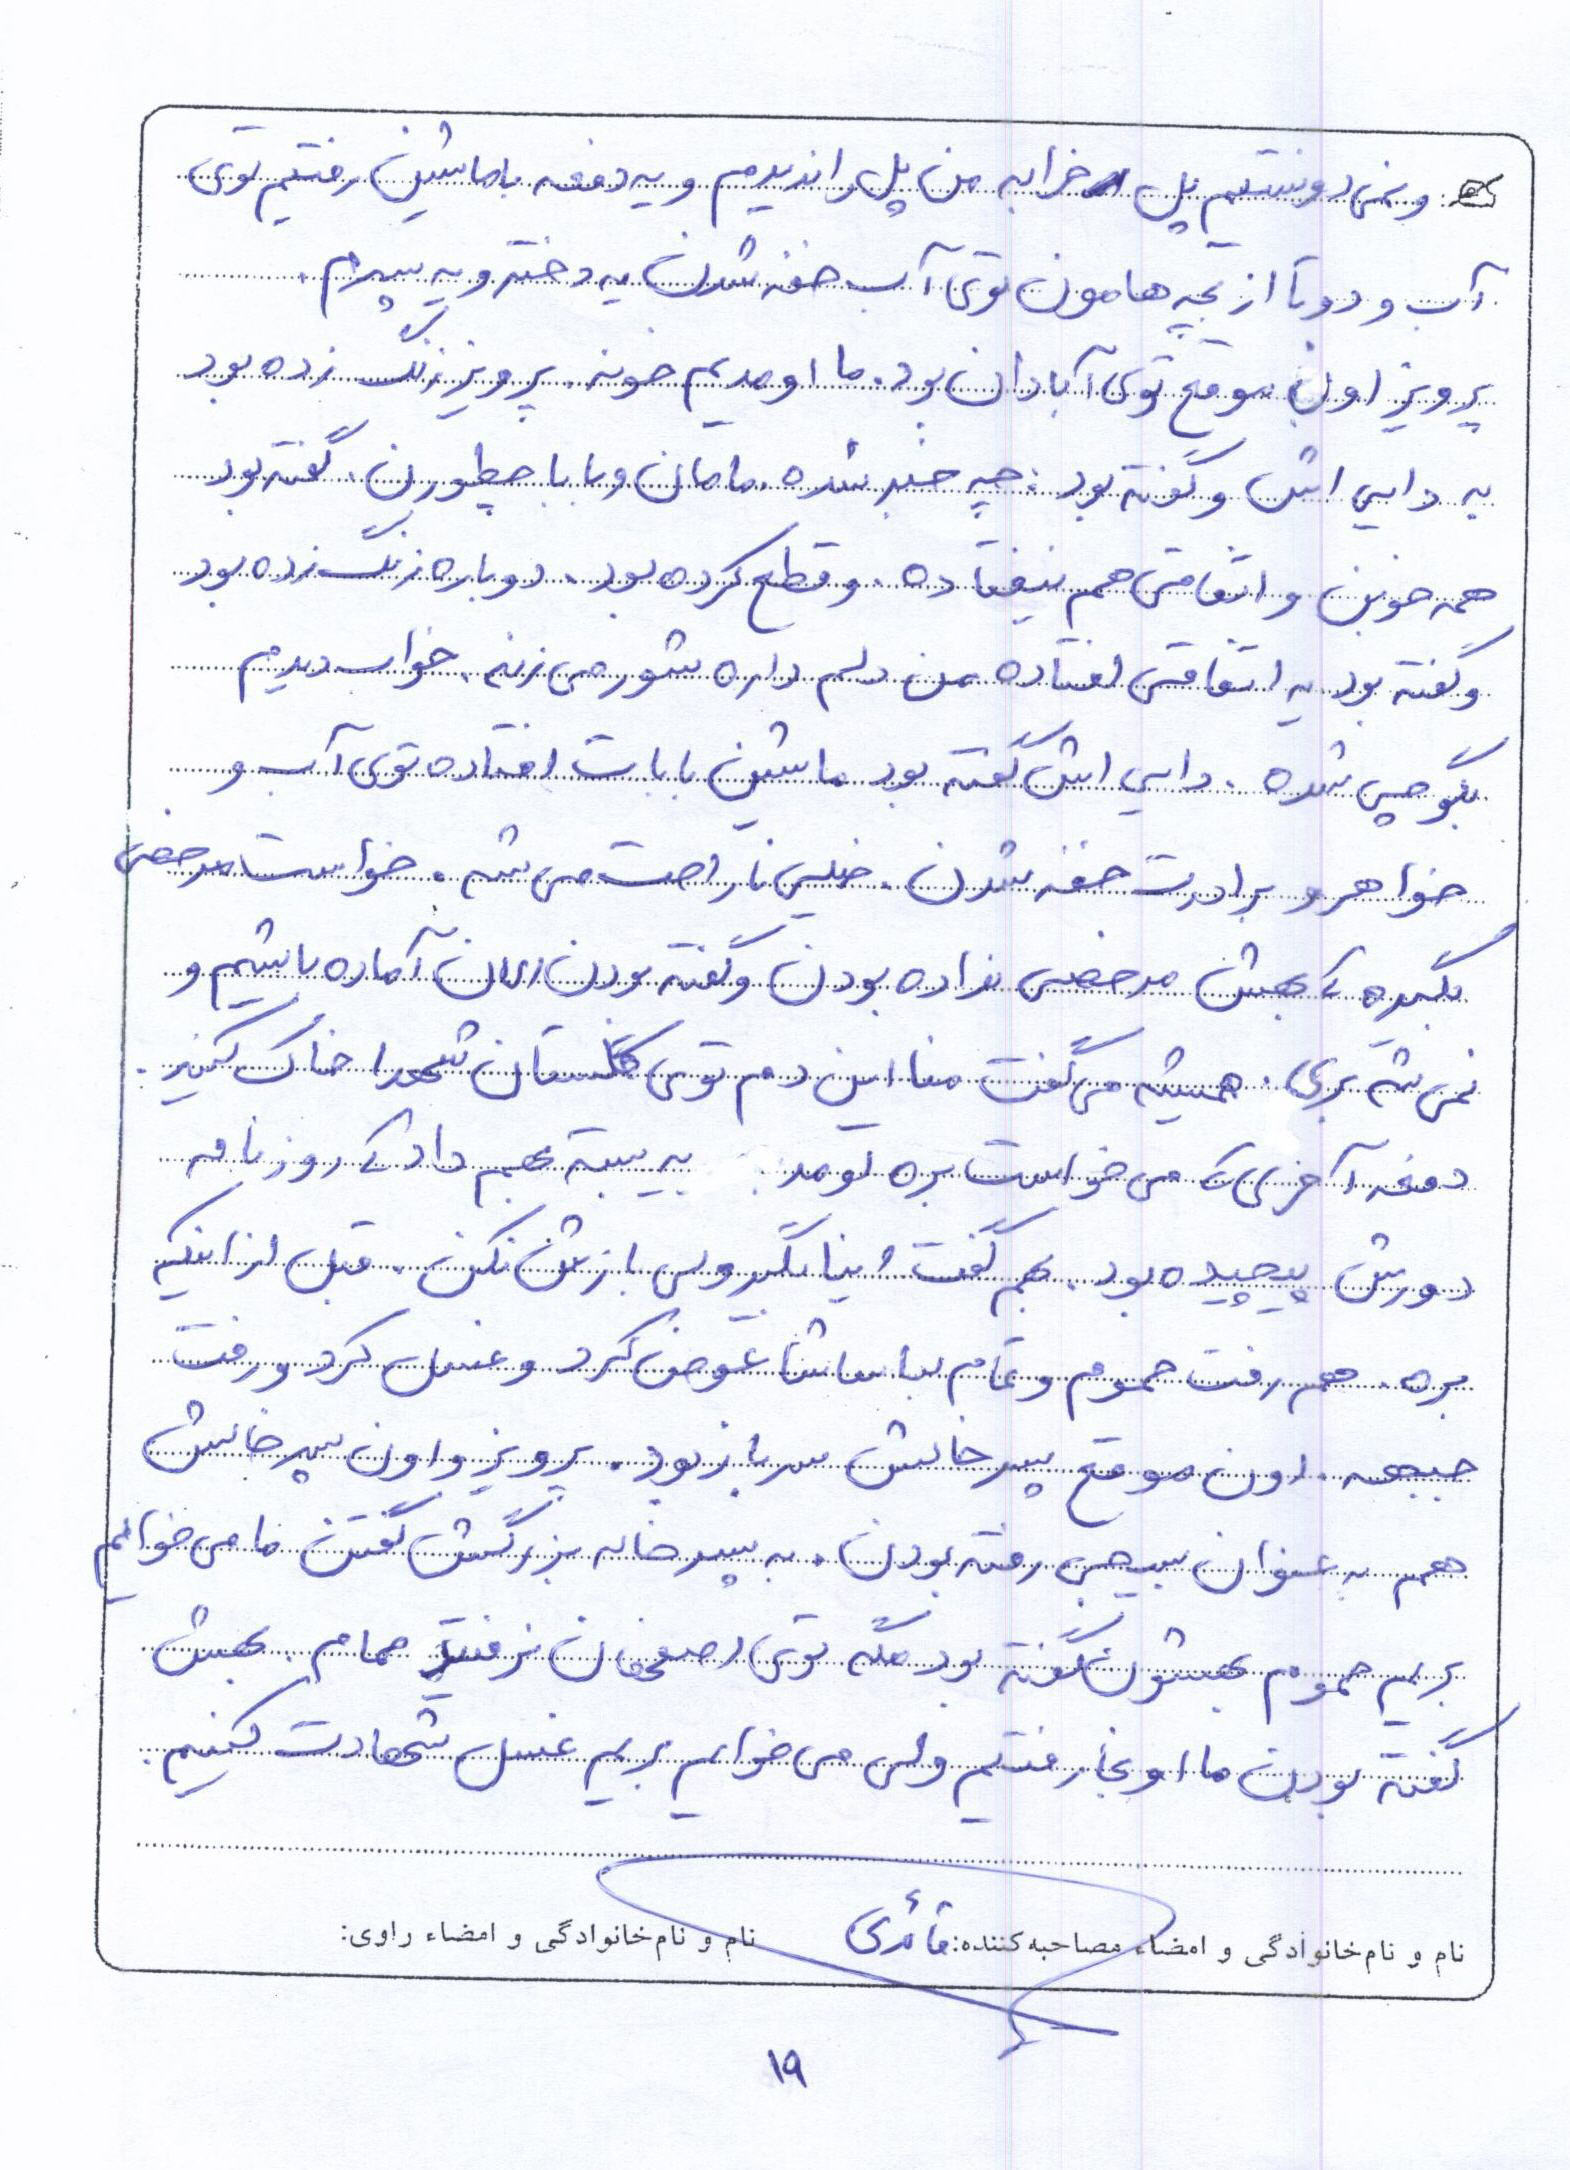 و نمی دونستیم پل خرابه من پل را ندیدم و یه دفعه با ماشین رفتیم توی
آب و دو تا از بچه هامون توی آب خفه شدن یه دختر و یه پسرم .
پرویز اون موقع توی آبادان بود . ما اومدیم خونه . پرویز زنگ زده بود
به دایی اش و گفته بود : چه خبر شده . مامان و بابا چطورن . گفته بود
همه خوبن و اتفاقی هم نیفتاده . و قطع کرده بود . دوباره زنگ زده بود
و گفته بود یه اتفاقی افتاده من دلم داره شور می زنه . خواب دیدم
بگو چی شده . دایی اش گفته بود ماشین بابات افتاده توی آب و
خواهر و برادرت خفه شدن . خیلی ناراحت می شه . خواست مرخصی
بگیره که بهش مرخصی نداده بودن و گفته بودن الان آماده باشیم و
نمی شه بری . همیشه می گفت منا این دم توی گلستان شهدا خاک کنید .
دفعه آخری که می خواست بره اومد یه بسته بهم داد که روزنامه
دورش پیچیده بود . بهم گفت اینا بگیر ولی بازش نکن . قبل از اینکه
بره . هم رفت حموم و تمام لباساشا عوض کرد و غسل کرد و رفت
جبهه . اون موقع پسر خالش سرباز بود . پرویز و اون پسر خالش
هم به عنوان بسیجی رفته بودن . به پسر خاله بزرگش گفتن ما می خوایم
بریم حموم بهشون گفته بود مگه توی اصفهان نرفتید حمام . بهش
گفته بودن ما اونجا رفتیم ولی می خوایم بریم غسل شهادت کنیم .
نام و نام خانوادگی و امضاء مصاحبه کننده: قائدی نام و نام خانوادگی و امضاء راوی:
۱۹